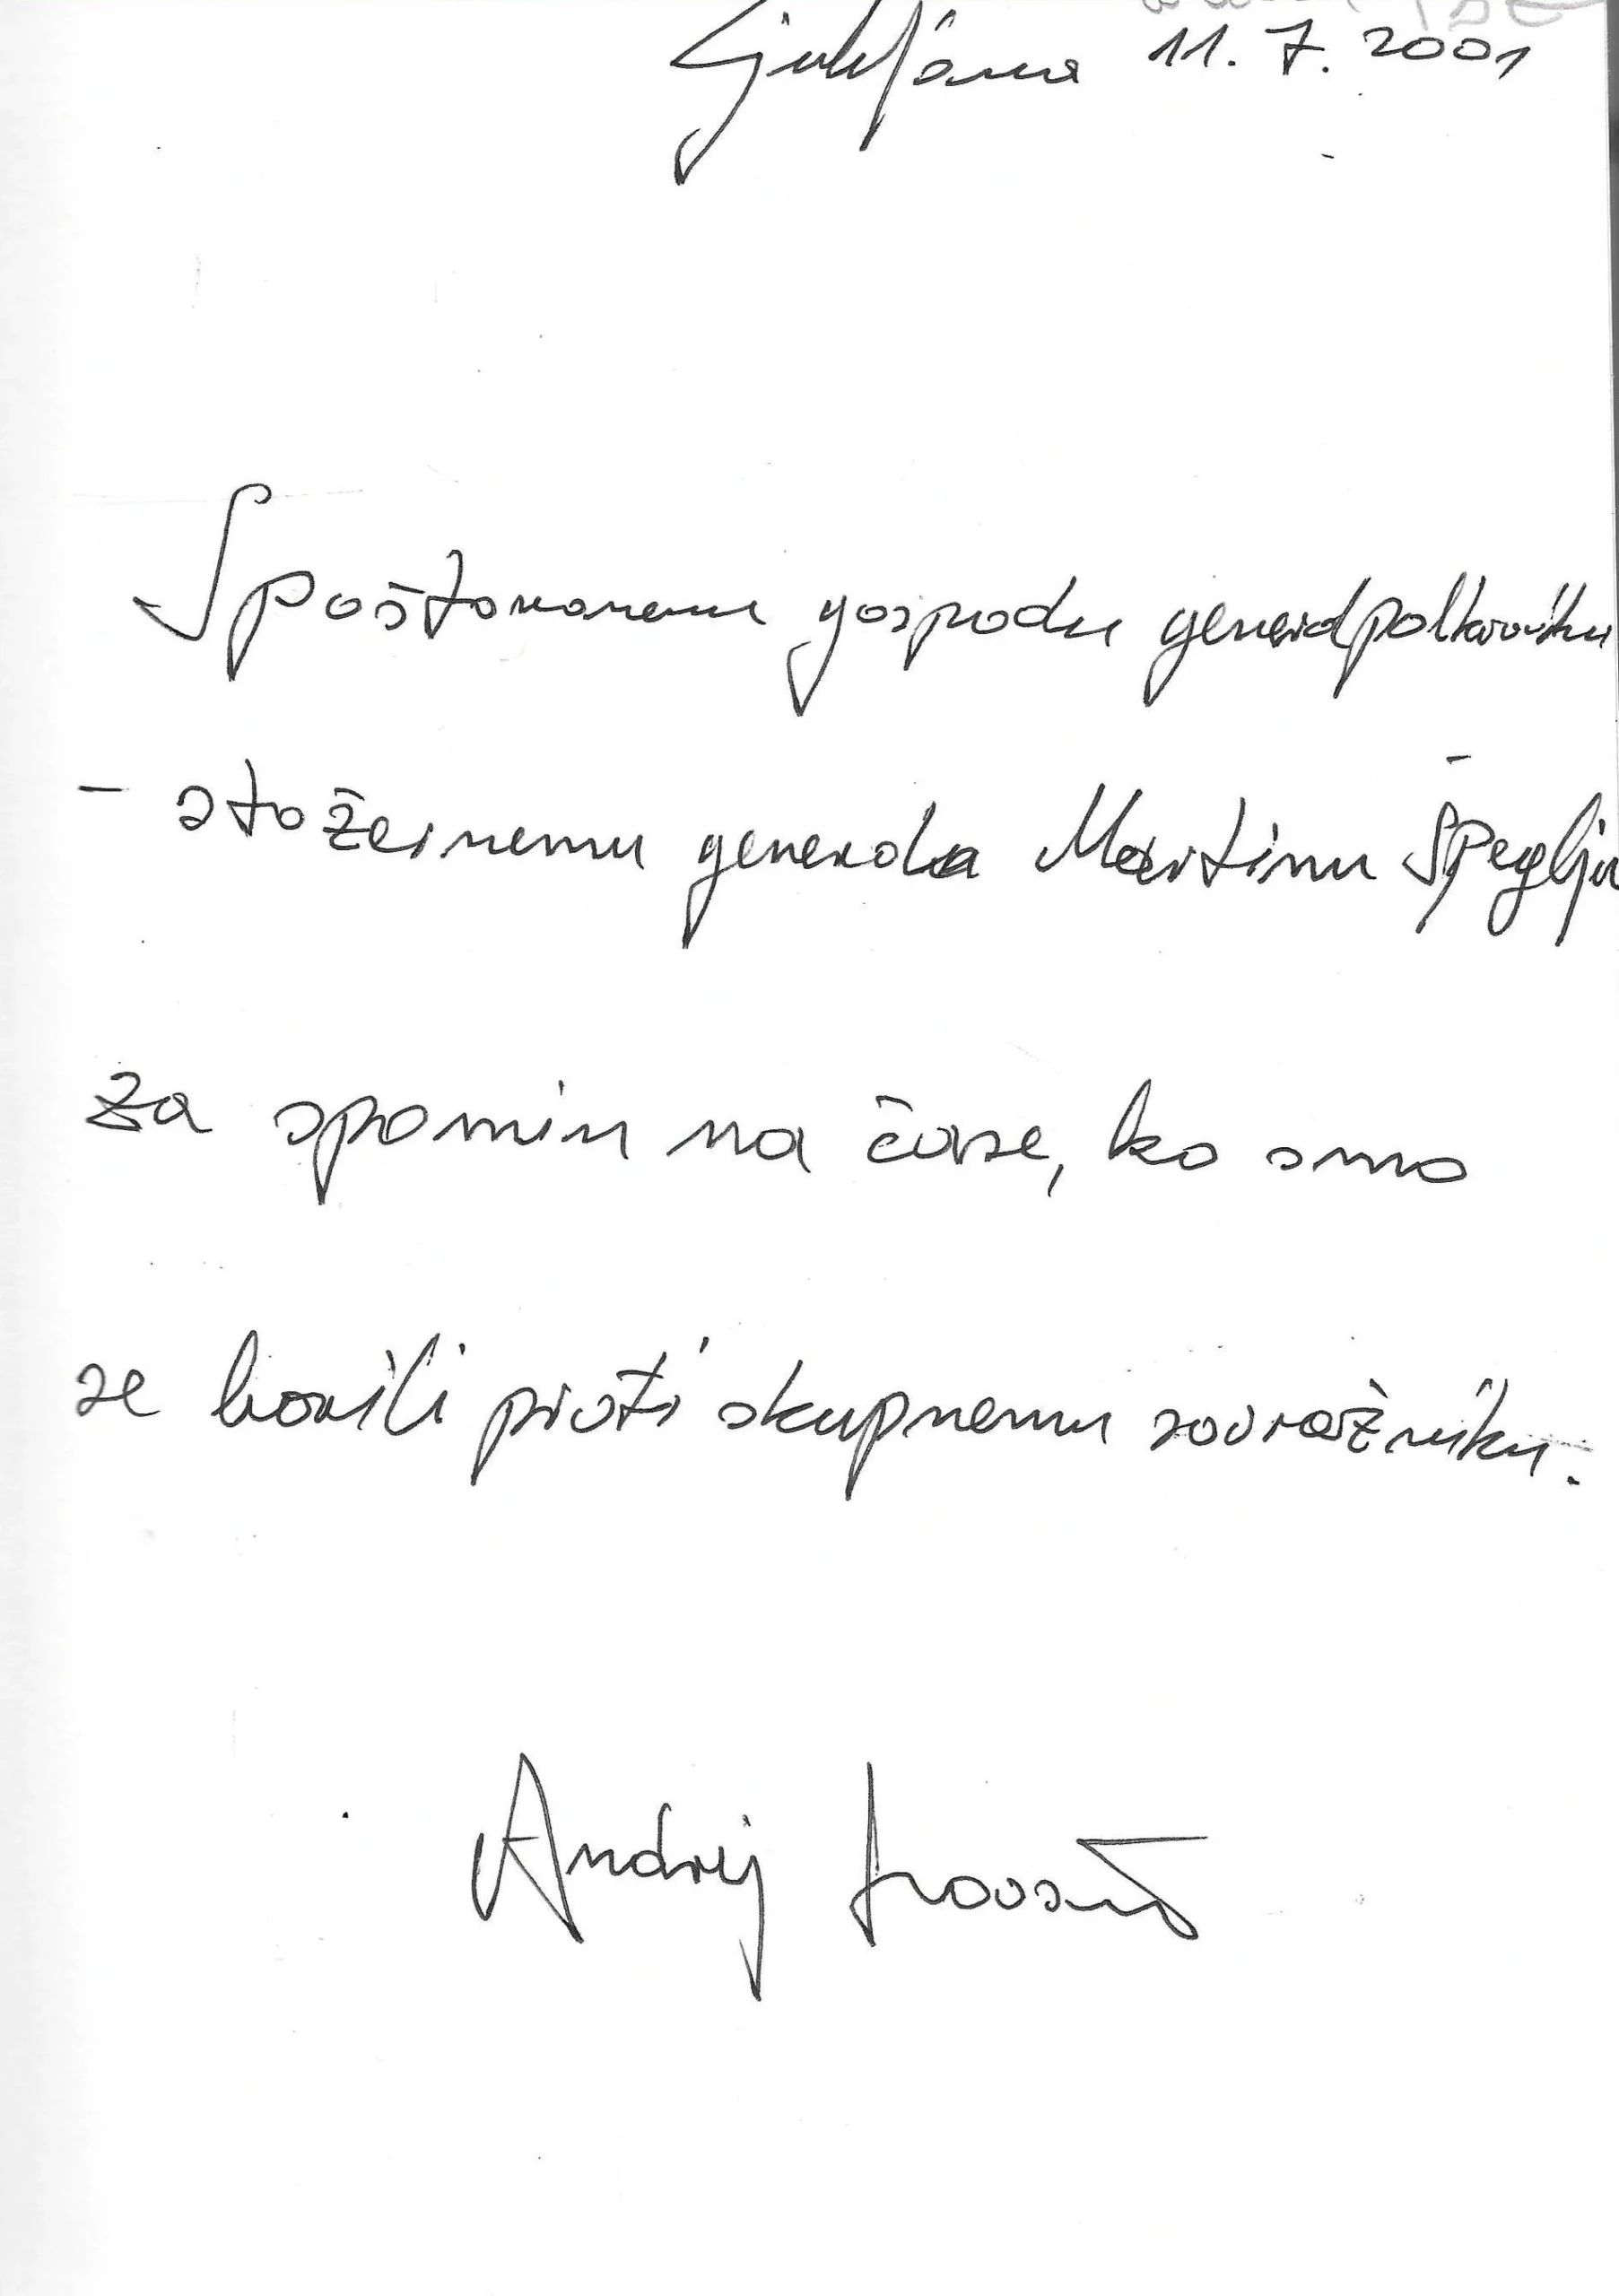 Ljubljana 11. 7. 2001
Spoštovanemu gospodu generalpolkovniku
- stožernemu generalu Martinu Špeglju
za spomin na čase, ko smo
se borili proti skupnemu sovražniku.
Andrej